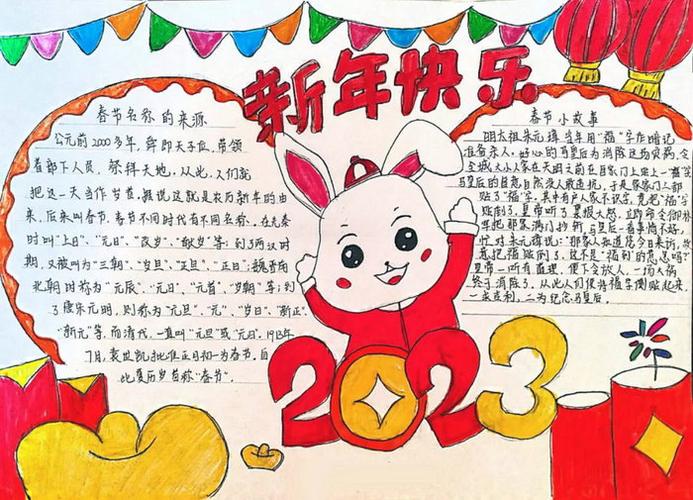 新年快乐
春节名称的来源
公元前2000多年,舜即天子位,带领
着部下人员,祭拜天地,从此,人们就
把这一天当作岁首,据说这就是农历新年的由
来,后来叫春节,春节不同时代有不同名称,在先秦
时叫"上日"、"元日"、"改岁"、"献岁"等;到了两汉时
期,又被叫为"三朝"、"岁旦"、"正旦"、"正日";魏晋南
北朝时称为"元辰"、"元日"、"元首"、"岁朝"等;到
了唐宋元明,则称为"元旦"、"元"、"岁日"、"新正"、
"新元"等,而清代,一直叫"元旦"或"元日"。1913年
7月,袁世凯批准正月初一为春节,自
此夏历岁首称"春节"。
春节小故事
明太祖朱元璋当年用"福"字作暗记
准备杀人,好心的马皇后为消除这场灾祸,令
全城大小人家在天明之前在自家门上
马皇后的旨意自然没人敢违抗,于是家家门上都
贴了"福"字,其中有户人家不识字,竟把"福"字
贴倒了,皇帝听了禀报大怒,立即命令御林
军把那家满门抄斩,马皇后一看事情不好,
忙对朱元璋说:"那家人知道您今日来访,故
意把福贴倒了,这不是"福到"的意思吗?"
皇帝一听有道理,便下令放人,一场大祸
终于消除了,从此人们便将福字倒贴起来,
一求吉利,二为纪念马皇后。
2023